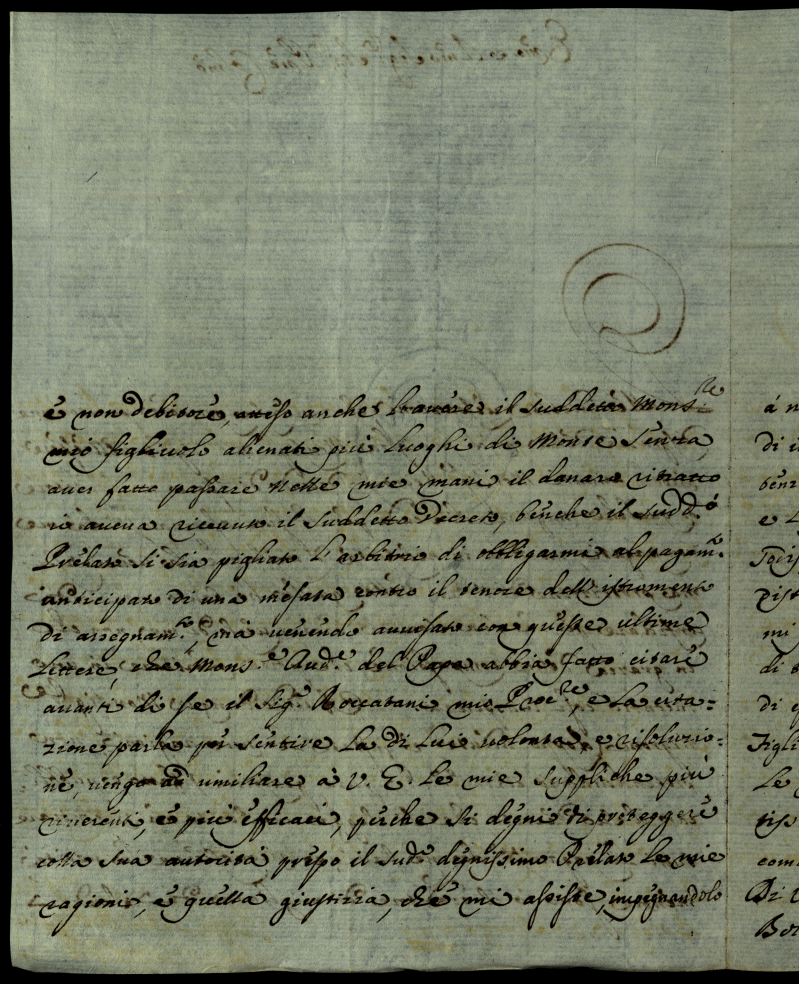 è non debitore, atteso anche l'avere il suddetto Mons.re
mio figliuolo alienati più Luoghi di Monte senza
aver fatto passare nelle mie mani il danaro ritratto
io aueua riceuuto il suddetto Decreto, benche il sudd.o
Prelato si sia pigliato l'arbitrio di obbligarmi al pagam.to
anticipato di una mesata contro il tenore dell'istromento
di assegnam.to, mà uenendo auuisato con queste ultime
lettere, che Mons.re Aud.re del Papa abbia fatto citare
auanti di se il Sig.r Roccatani mio Proc.re, e la cita=
zione parla per sentire la di lui uolontà, e risoluzio=
ne, uengo ad umiliare à V. E. le mie suppliche più
riuerenti, e più efficaci, perche si degni di proteggere
colla sua autorità presso il sud.o degnissimo Prelato le mie
ragioni, e quella giustizia, che mi assiste, impegnandolo
à n
di
e
mi
di
di
Figli
Le
tiss
com
Di V